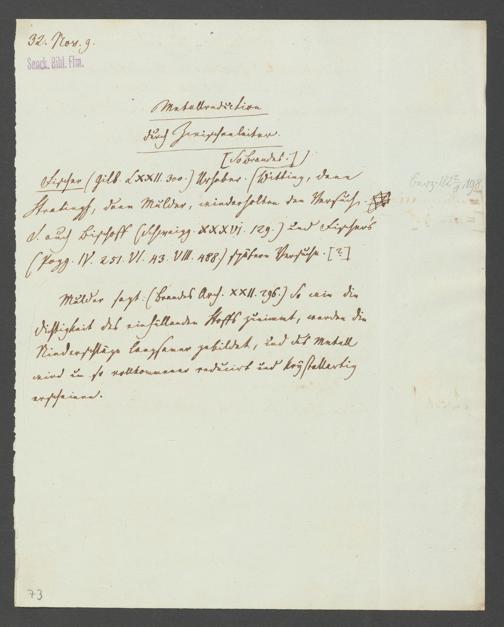 32. Nov. 9.
Senck. Bibl. Ffm.
Metallreduction
durch Zwischenleiter.
[So Brandes:])
Fischer (Gilb. LXXII. 300.) Urheber. (Witting, dann
Stratingh, dann Mulder, wiederholten den Versuch.
S. auch Bischoff (Schweigg. XXXVI. 129.) und Fischer's
(Pogg. IV. 291. VI. 43. VIII. 488) spätere Versuche. [2]
Mulder sagt: (Brandes Arch. XXII. 296.) So wie die
Dichtigkeit des einhüllenden Stoffs zunimmt, werden die
Niederschläge langsamer gebildet, und das Metall
wird um so vollkommener reducirt und krystallartig
erscheinen.
73